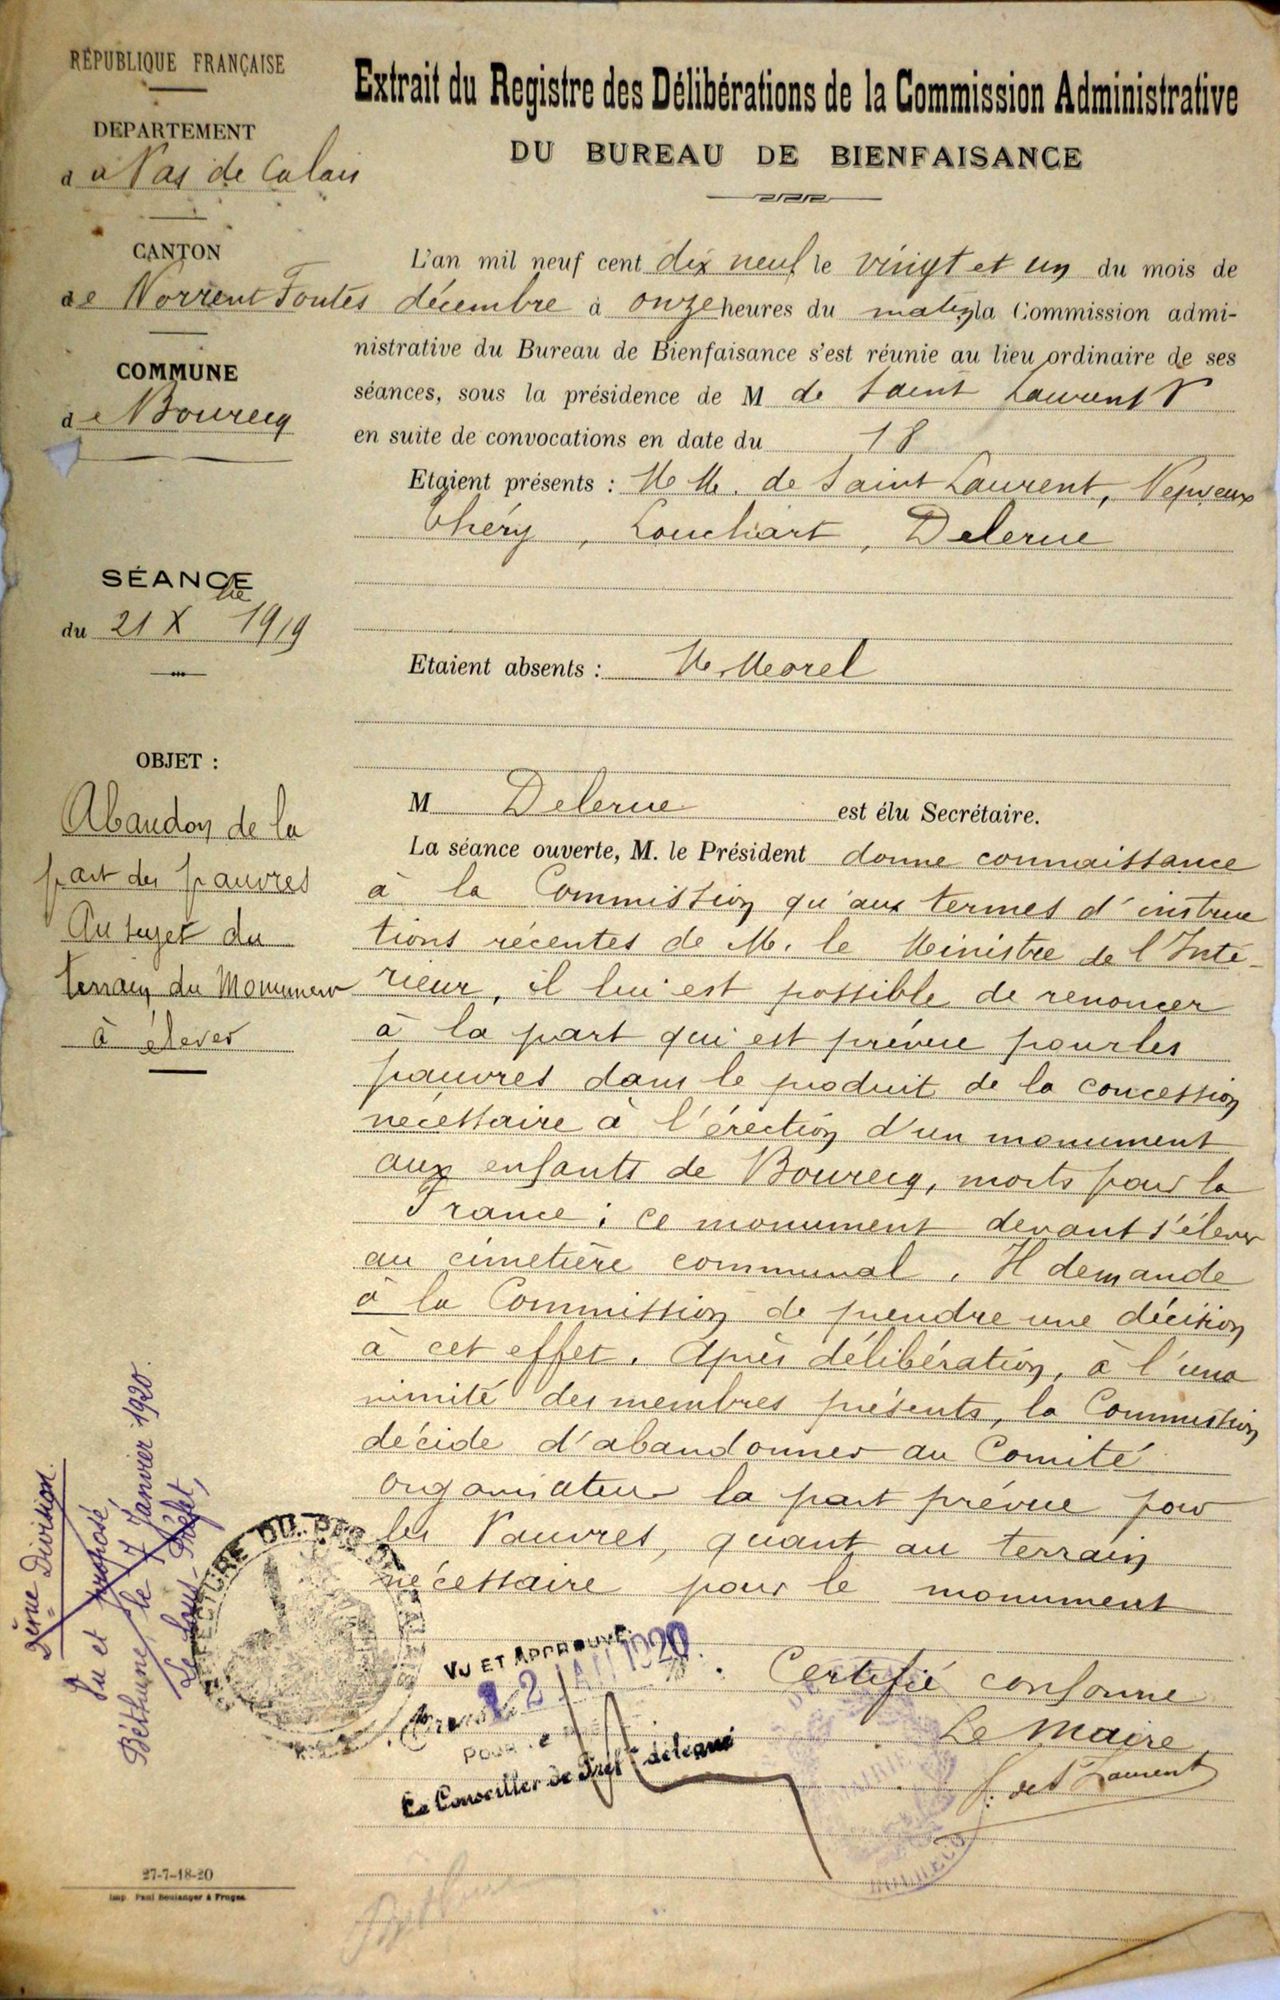 RÉPUBLIQUE FRANÇAISE
DEPARTEMENT
du Pas de Calais
CANTON
de Norrent Fontes
COMMUNE
de Bourecq
SÉANCE
du 21 Xbre 1919
OBJET :
Abandon de la
part des pauvres
Au sujet du
terrain du Monument
à élever
Extrait du Registre des Délibérations de la Commission Administrative
DU BUREAU DE BIENFAISANCE
L'an mil neuf cent dix neuf le vingt et un du mois de
décembre à onze heures du matin la Commission admi-
nistrative du Bureau de Bienfaisance s'est réunie au lieu ordinaire de ses
séances, sous la présidence de M de Saint Laurent P
en suite de convocations en date du 18
Etaient présents : M M. de Saint Laurent, Nepveux
Théry, Louchart, Delerue
Etaient absents : M. Morel
M Delerue est élu Secrétaire.
La séance ouverte, M. le Président donne connaissance
à la Commission qu'aux termes d'instruc
tions récentes de M. le Ministre de l'Inté-
rieur, il lui est possible de renoncer
à la part qui est prévue pour les
pauvres dans le produit de la concession
nécessaire à l'érection d'un monument
aux enfants de Bourecq, morts pour la
France ; ce monument devant s'élever
au cimetière communal. Il demande
à la Commission de prendre une décision
à cet effet. Après délibération, à l'una
nimité des membres présents, la Commission
décide d'abandonner au Comité
organisateur la part prévue pour
les Pauvres, quant au terrain
nécessaire pour le monument
Certifié conforme
Le Maire
de St Laurent
2ème Division
Vu et proposé,
Béthune, le 7 Janvier 1920.
Le Sous-Préfet,
VU ET APPROUVÉ
12 JAN 1920
POUR LE
Le Conseiller de Préf. délégué
MAIRIE
BOURECQ
27-7-18-20
Imp. Paul Boulanger à Fruges